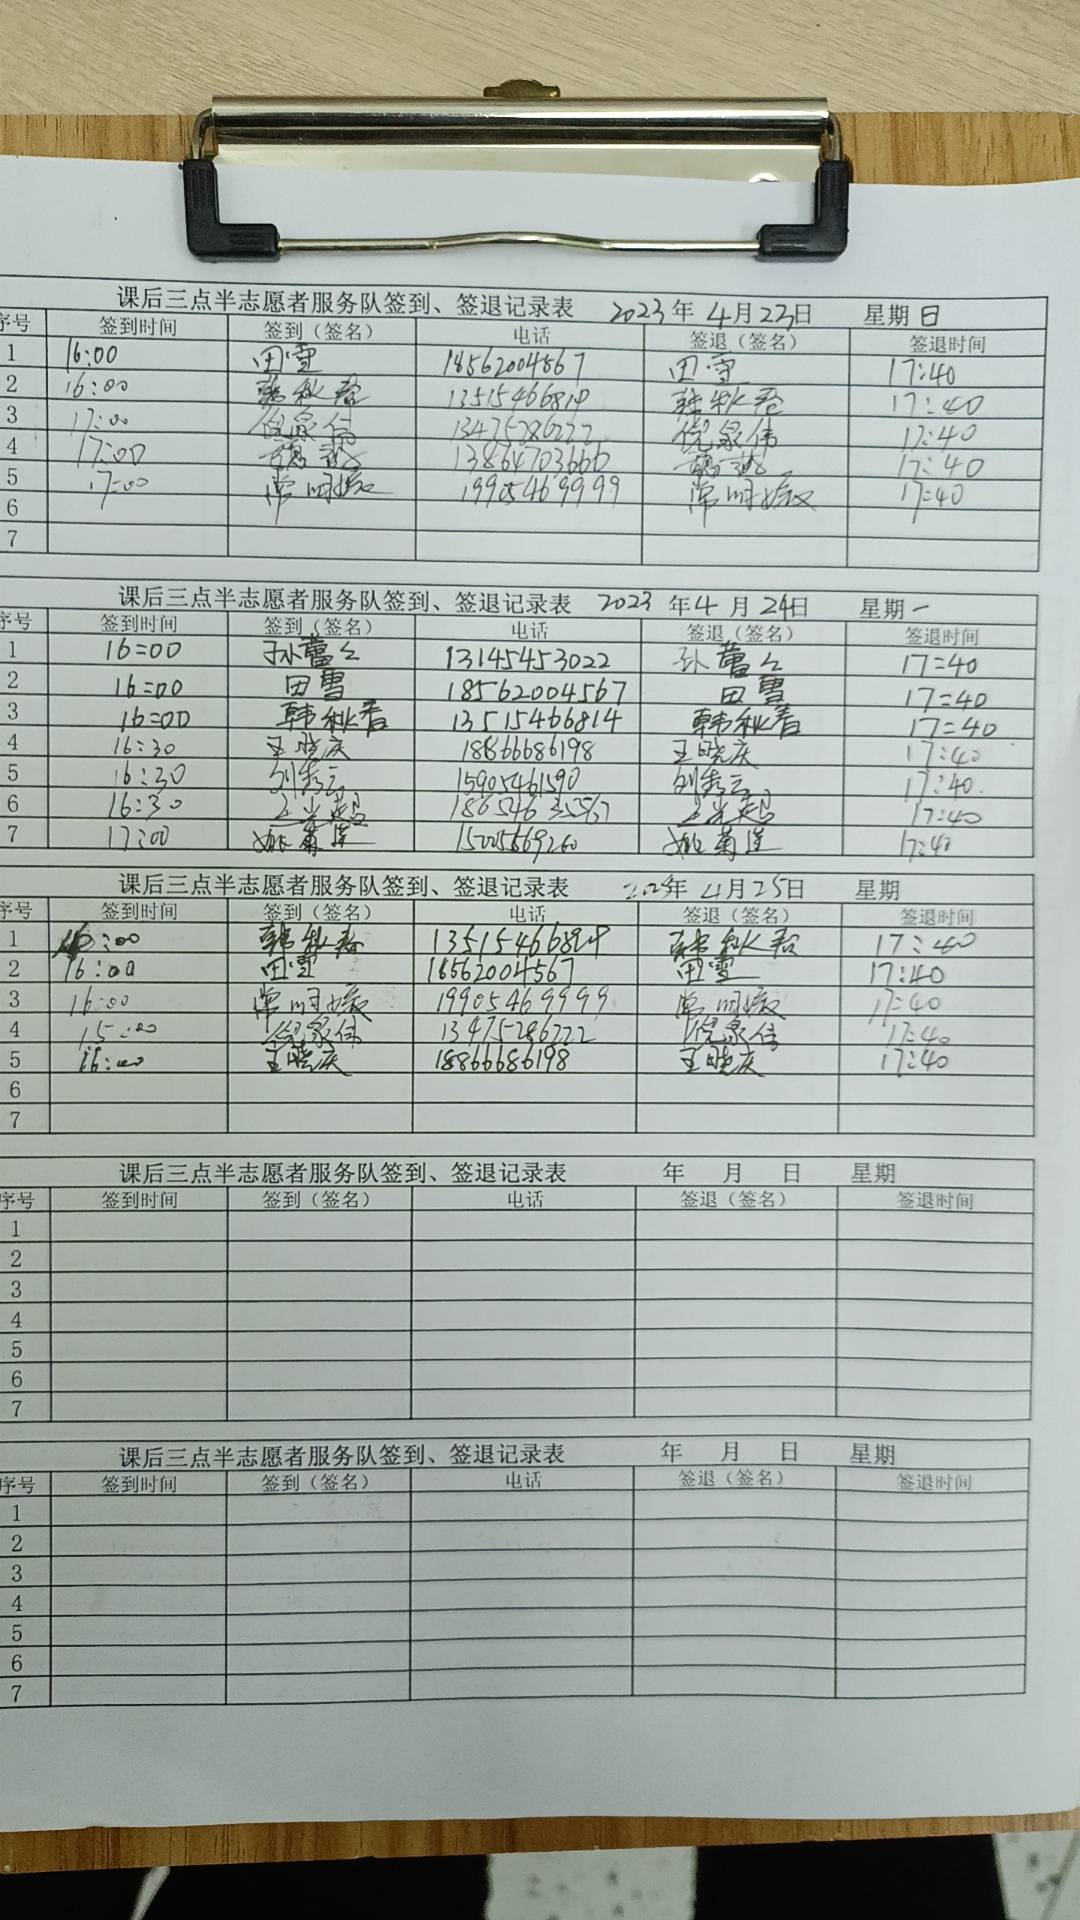 课后三点半志愿者服务队签到、签退记录表 2023年 4月 23日 星期日
序号 签到时间 签到（签名） 电话 签退（签名） 签退时间
1 16:00 田雪 18562004567 田雪 17:40
2 16:00 韩秋春 13515466814 韩秋春 17:40
3 17:00 倪家伟 13475286222 倪家伟 17:40
4 17:00 13864703666 17:40
5 17:00 常明媛 19905469999 常明媛 17:40
6
7
课后三点半志愿者服务队签到、签退记录表 2023 年4 月 24日 星期一
序号 签到时间 签到（签名） 电话 签退（签名） 签退时间
1 16:00 13145453022 17:40
2 16:00 田雪 18562004567 田雪 17:40
3 16:00 韩秋春 13515466814 韩秋春 17:40
4 16:30 王晓庆 18866686198 王晓庆 17:40
5 16:30 刘秀云 15905461590 刘秀云 17:40.
6 16:30 17:40
7 17:00 姚菊莲 姚菊莲 17:40
课后三点半志愿者服务队签到、签退记录表 年 4月25日 星期
序号 签到时间 签到（签名） 电话 签退（签名） 签退时间
1 16:00 韩秋春 13515466814 韩秋春 17:40
2 16:00 田雪 18562004567 田雪 17:40
3 16:00 常明媛 19905469999 常明媛 17:40
4 15:00 倪家伟 13475286222 倪家伟 17:40
5 16:00 王晓庆 18866686198 王晓庆 17:40
6
7
课后三点半志愿者服务队签到、签退记录表 年 月 日 星期
序号 签到时间 签到（签名） 电话 签退（签名） 签退时间
1
2
3
4
5
6
7
课后三点半志愿者服务队签到、签退记录表 年 月 日 星期
序号 签到时间 签到（签名） 电话 签退（签名） 签退时间
1
2
3
4
5
6
7